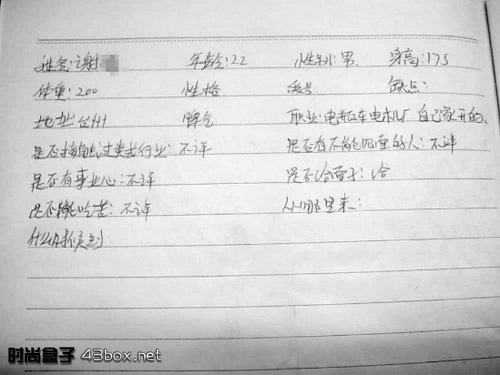 姓名:谢 年龄:22 性别:男 身高:175
体重:200 性格 爱好 缺点:
地址:台州 脾气 职业:电瓶车电机厂自己家开的
是否接触过类 行业:不详 是否有不能 的人:不详
是否有事业心:不详 是否给面子:给
是否能吃苦:不详 从哪里来:
什么时候到
时尚盒子 43box.net